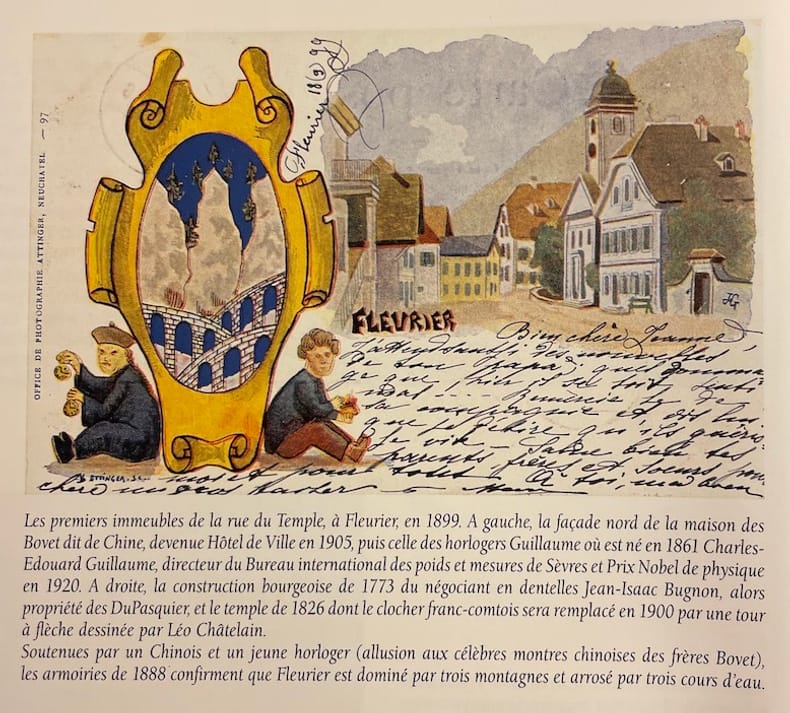 OFFICE DE PHOTOGRAPHIE ATTINGER, NEUCHATEL — 97
Fleurier 18(9)99
FLEURIER
Bien chère Jeanne
J'attendsaussi des nouvelles
de ton papa; quel
ce que hier il se soit senti
pas ... de
sa compagnie et dis lui
que je désire qu'ils
vite — Salue bien tes
parents, frères et soeurs pour
A toi, ma bien
moi et pour
chère
ATTINGER. Sc.
HG
Les premiers immeubles de la rue du Temple, à Fleurier, en 1899. A gauche, la façade nord de la maison des
Bovet dit de Chine, devenue Hôtel de Ville en 1905, puis celle des horlogers Guillaume où est né en 1861 Charles-
Edouard Guillaume, directeur du Bureau international des poids et mesures de Sèvres et Prix Nobel de physique
en 1920. A droite, la construction bourgeoise de 1773 du négociant en dentelles Jean-Isaac Bugnon, alors
propriété des DuPasquier, et le temple de 1826 dont le clocher franc-comtois sera remplacé en 1900 par une tour
à flèche dessinée par Léo Châtelain.
Soutenues par un Chinois et un jeune horloger (allusion aux célèbres montres chinoises des frères Bovet),
les armoiries de 1888 confirment que Fleurier est dominé par trois montagnes et arrosé par trois cours d'eau.